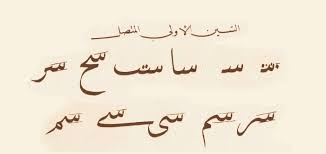 السين الاولى المتصل
سد سا سح سر
سر سم سى سے سم